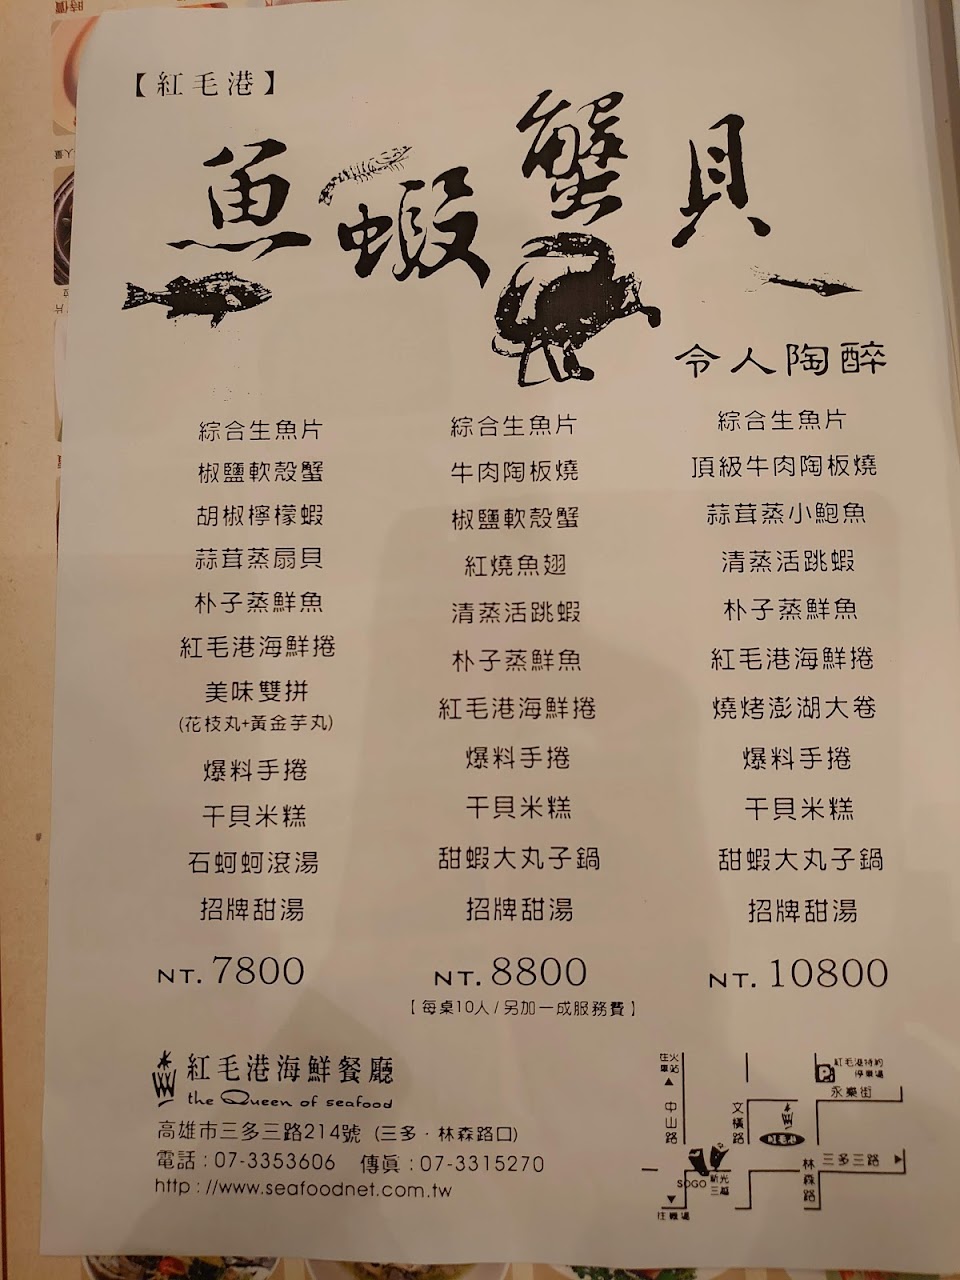 【紅毛港】
魚蝦蟹貝
令人陶醉
綜合生魚片
椒鹽軟殼蟹
胡椒檸檬蝦
蒜茸蒸扇貝
朴子蒸鮮魚
紅毛港海鮮捲
美味雙拼
(花枝丸+黃金芋丸)
爆料手捲
干貝米糕
石蚵蚵滾湯
招牌甜湯
NT. 7800
綜合生魚片
牛肉陶板燒
椒鹽軟殼蟹
紅燒魚翅
清蒸活跳蝦
朴子蒸鮮魚
紅毛港海鮮捲
爆料手捲
干貝米糕
甜蝦大丸子鍋
招牌甜湯
NT. 8800
綜合生魚片
頂級牛肉陶板燒
蒜茸蒸小鮑魚
清蒸活跳蝦
朴子蒸鮮魚
紅毛港海鮮捲
燒烤澎湖大卷
爆料手捲
干貝米糕
甜蝦大丸子鍋
招牌甜湯
NT. 10800
【每桌10人/另加一成服務費】
紅毛港海鮮餐廳
the Queen of seafood
高雄市三多三路214號 (三多・林森路口)
電話:07-3353606 傳真:07-3315270
http://www.seafoodnet.com.tw
往火車站
中山路
文橫路
P
紅毛港特約停車場
永樂街
紅毛港
林森路
三多三路
SOGO
新光三越
往機場